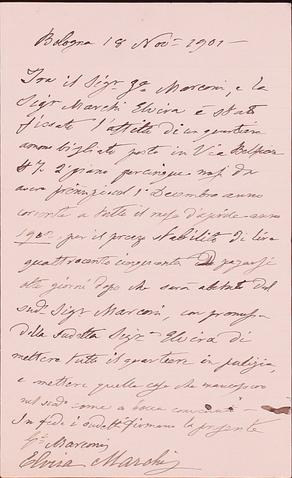 Bologna 18 Nov= 1901 -
Tra il Sigr Gmo Marconi, e la
Sigr Marchi Elvira è stato
fissato l'affitto di un quartiere
ammobigliato posto in Via
# 7. 2° piano per cinque mesi da
1° Decembre anno
corrente a tutto il mese d'Aprile anno
1902 per il prezzo stabilito di lire
quattrocento cinquanta Da pagarsi
otto giorni dopo che sarà abitato dal
sud. Sigr Marconi, con promessa
della sudetta Sigr= Elvira di
mettere tutto il quartiere in pulizia,
e mettere quelle cose che mancassero
nel come a bocca
In fede i sudetti firmano la presente
Marconi
Elvira Marchi